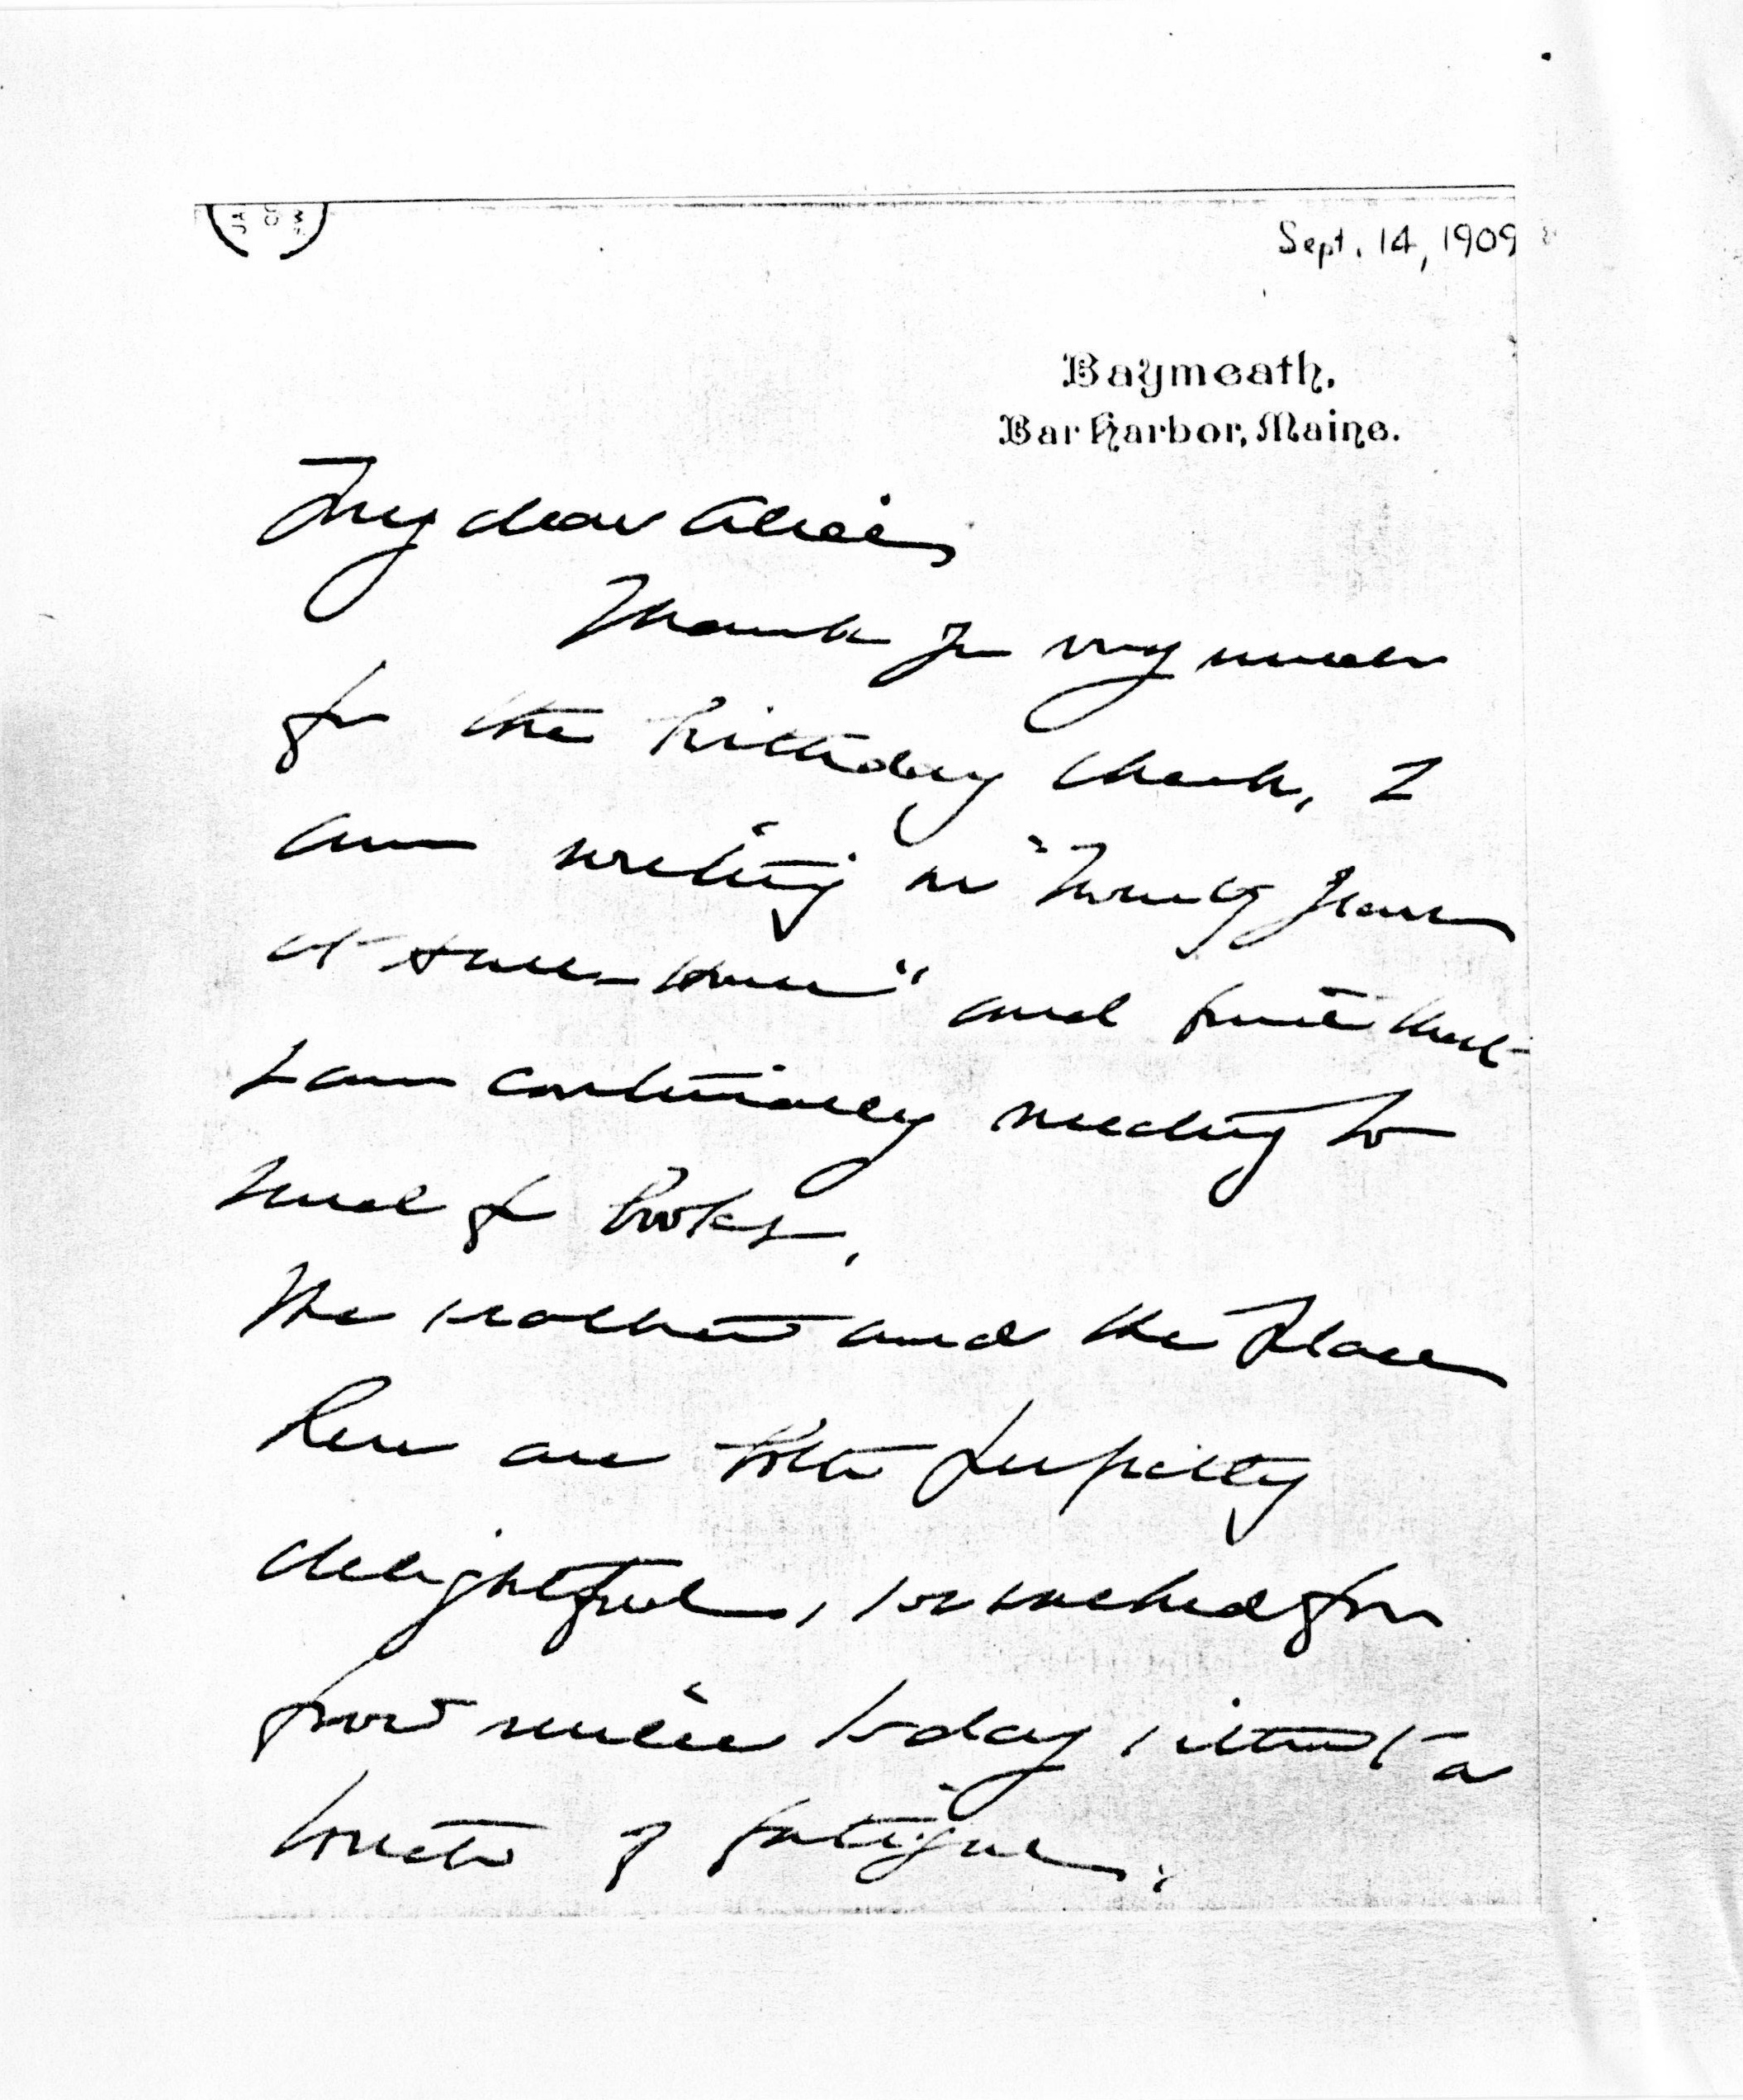 Sept. 14, 1909
Baymeath,
Bar Harbor, Maine.
My dear Alice,
Thank you very much
for the birthday check, I
am writing on "Twenty Years
at Hull-House" and find that
I am continually needing to
send for books.
The weather and the place
here are both perfectly
delightful, we walked for
four miles today without a
touch of fatigue.